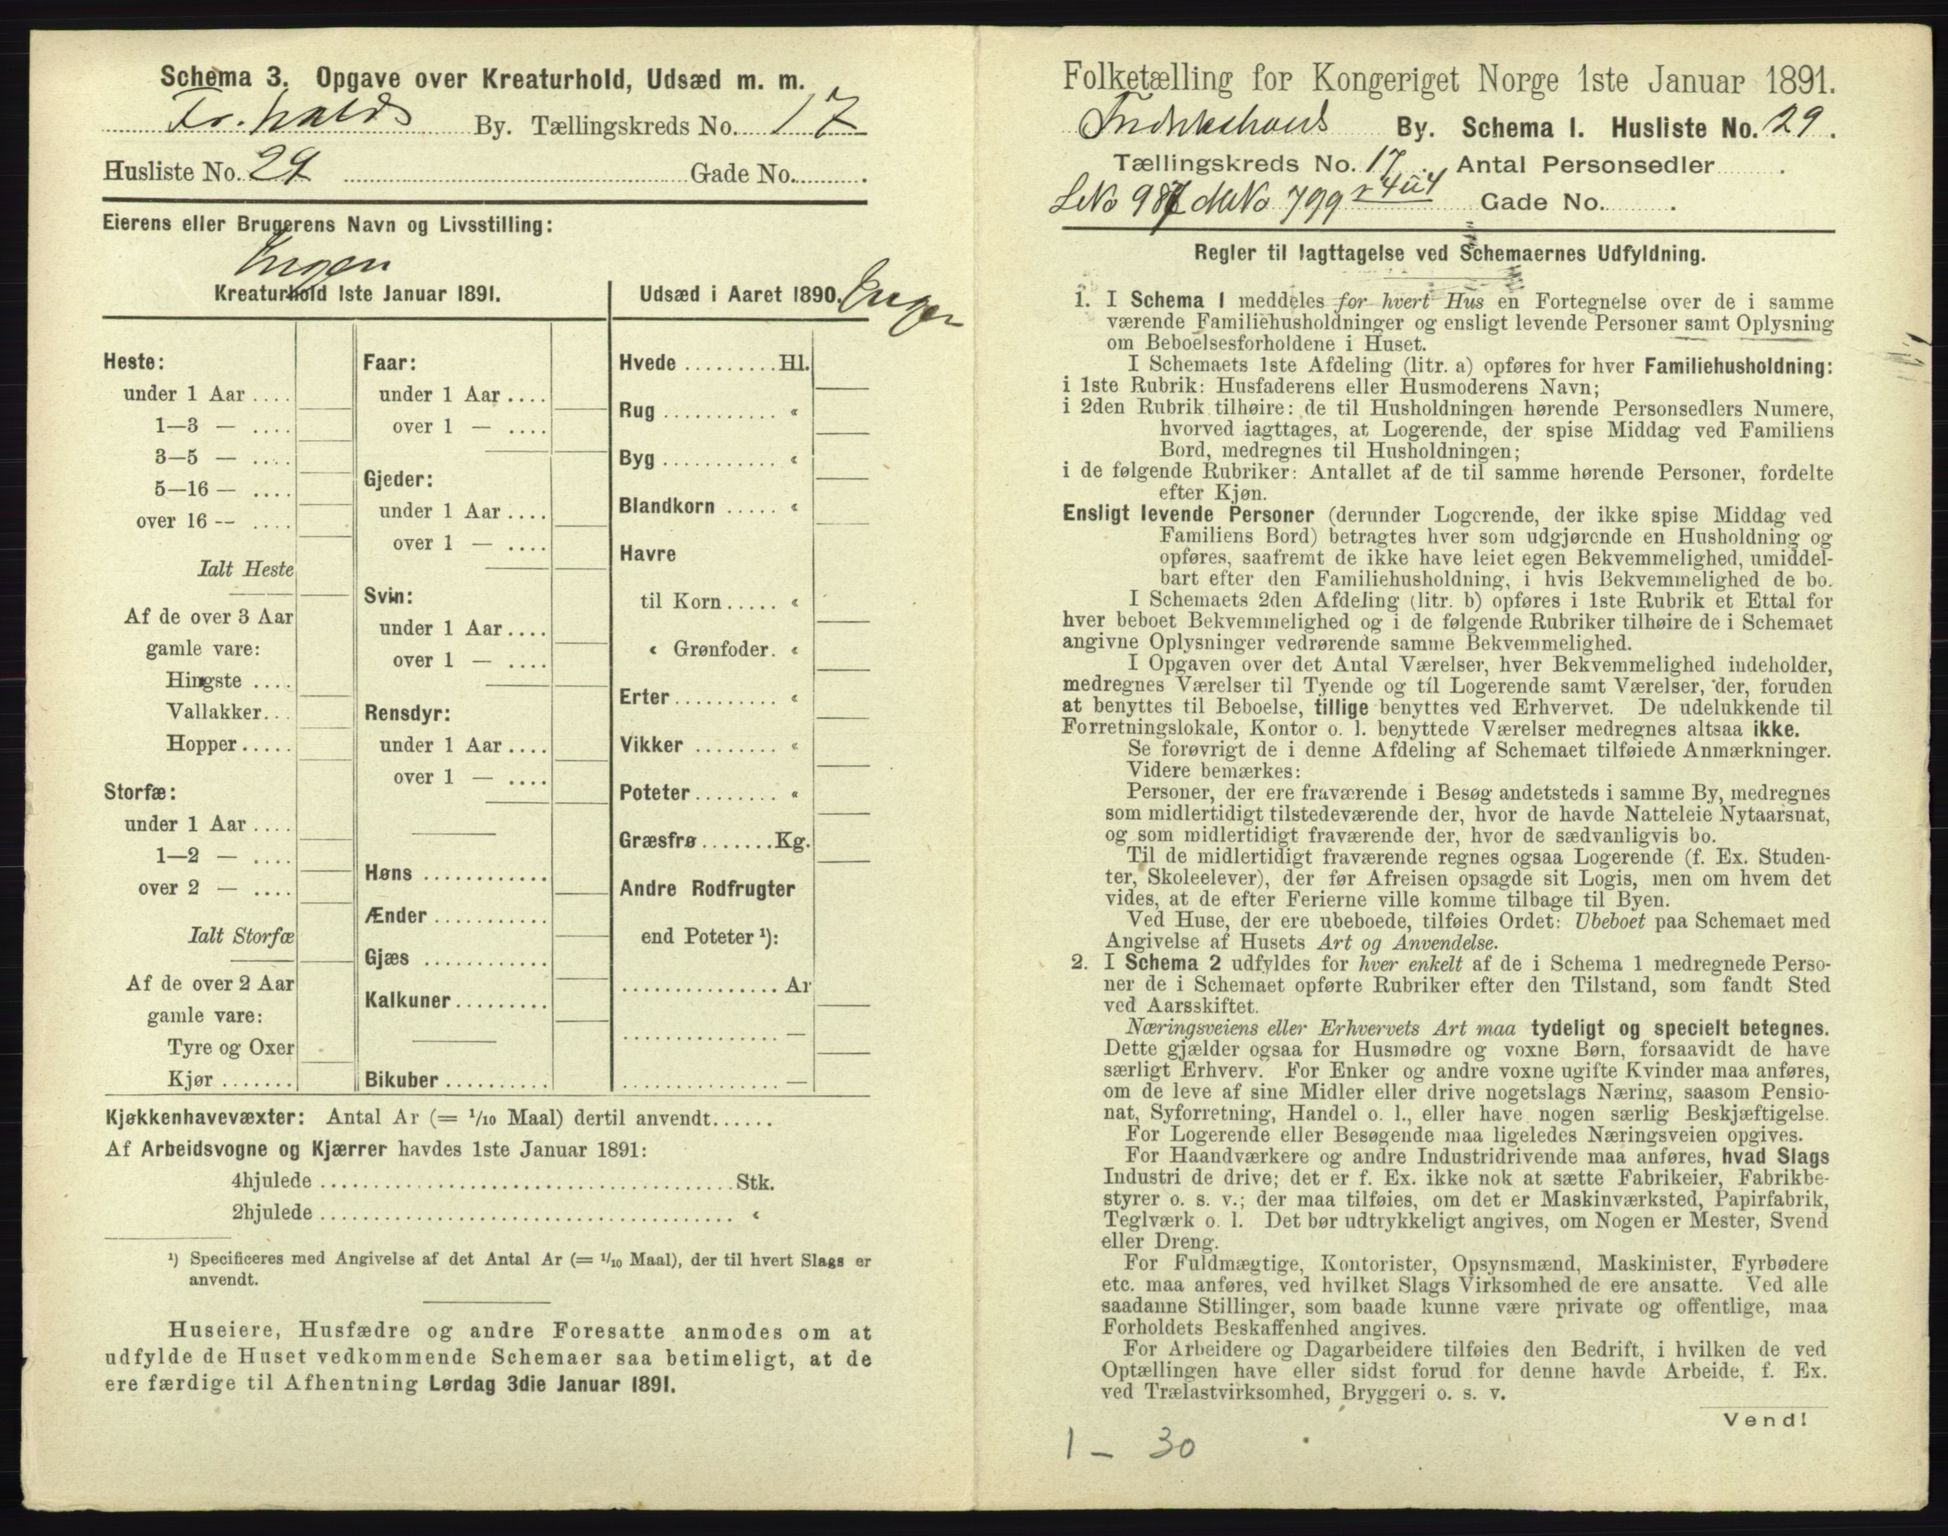 Schema 3. Opgave over Kreaturhold, Udsæd m. m.
Fr.halds By. Tællingskreds No. 17
Husliste No. 29 Gade No. .
Eierens eller Brugerens Navn og Livsstilling:
Ingen
Kreaturhold 1ste Januar 1891.
Heste:
under 1 Aar ....
1—3 — ....
3—5 — ....
5—16 — ....
over 16 -- ....
Ialt Heste
Af de over 3 Aar
gamle vare:
Hingste ....
Vallakker...
Hopper.....
Storfæ:
under 1 Aar ....
1—2 — ....
over 2 — ....
Ialt Storfæ
Af de over 2 Aar
gamle vare:
Tyre og Oxer
Kjør .......
Faar:
under 1 Aar ....
over 1 — ....
Gjeder:
under 1 Aar ....
over 1 — ....
Svin:
under 1 Aar ....
over 1 — ....
Rensdyr:
under 1 Aar ....
over 1 — ....
Høns ............
Ænder ...........
Gjæs ............
Kalkuner.........
Bikuber ..........
Udsæd i Aaret 1890. Ingen
Hvede .........Hl.
Rug ........... «
Byg ........... «
Blandkorn ..... «
Havre
til Korn ..... «
« Grønfoder. «
Erter.......... «
Vikker ........ «
Poteter ........ «
Græsfrø .......Kg.
Andre Rodfrugter
end Poteter ¹):
...............Ar
............... —
............... —
Kjøkkenhavevæxter: Antal Ar (= 1/10 Maal) dertil anvendt......
Af Arbeidsvogne og Kjærrer havdes 1ste Januar 1891:
4hjulede ........................................Stk.
2hjulede ........................................ «
¹) Specificeres med Angivelse af det Antal Ar (= 1/10 Maal), der til hvert Slags er
anvendt.
Huseiere, Husfædre og andre Foresatte anmodes om at
udfylde de Huset vedkommende Schemaer saa betimeligt, at de
ere færdige til Afhentning Lørdag 3die Januar 1891.
Folketælling for Kongeriget Norge 1ste Januar 1891.
Fredrikshalds By. Schema I. Husliste No. 29.
Tællingskreds No. 17. Antal Personsedler .
LNo 987 MNo 799 Gade No. .
Regler til Iagttagelse ved Schemaernes Udfyldning.
1. I Schema 1 meddeles for hvert Hus en Fortegnelse over de i samme
værende Familiehusholdninger og ensligt levende Personer samt Oplysning
om Beboelsesforholdene i Huset.
I Schemaets 1ste Afdeling (litr. a) opføres for hver Familiehusholdning:
i 1ste Rubrik: Husfaderens eller Husmoderens Navn;
i 2den Rubrik tilhøire: de til Husholdningen hørende Personsedlers Numere,
hvorved iagttages, at Logerende, der spise Middag ved Familiens
Bord, medregnes til Husholdningen;
i de følgende Rubriker: Antallet af de til samme hørende Personer, fordelte
efter Kjøn.
Ensligt levende Personer (derunder Logerende, der ikke spise Middag ved
Familiens Bord) betragtes hver som udgjørende en Husholdning og
opføres, saafremt de ikke have leiet egen Bekvemmelighed, umiddel-
bart efter den Familiehusholdning, i hvis Bekvemmelighed de bo.
I Schemaets 2den Afdeling (litr. b) opføres i 1ste Rubrik et Ettal for
hver beboet Bekvemmelighed og i de følgende Rubriker tilhøire de i Schemaet
angivne Oplysninger vedrørende samme Bekvemmelighed.
I Opgaven over det Antal Værelser, hver Bekvemmelighed indeholder,
medregnes Værelser til Tyende og til Logerende samt Værelser, der, foruden
at benyttes til Beboelse, tillige benyttes ved Erhvervet. De udelukkende til
Forretningslokale, Kontor o. l. benyttede Værelser medregnes altsaa ikke.
Se forøvrigt de i denne Afdeling af Schemaet tilføiede Anmærkninger.
Videre bemærkes:
Personer, der ere fraværende i Besøg andetsteds i samme By, medregnes
som midlertidigt tilstedeværende der, hvor de havde Natteleie Nytaarsnat,
og som midlertidigt fraværende der, hvor de sædvanligvis bo.
Til de midlertidigt fraværende regnes ogsaa Logerende (f. Ex. Studen-
ter, Skoleelever), der før Afreisen opsagde sit Logis, men om hvem det
vides, at de efter Ferierne ville komme tilbage til Byen.
Ved Huse, der ere ubeboede, tilføies Ordet: Ubeboet paa Schemaet med
Angivelse af Husets Art og Anvendelse.
2. I Schema 2 udfyldes for hver enkelt af de i Schema 1 medregnede Perso-
ner de i Schemaet opførte Rubriker efter den Tilstand, som fandt Sted
ved Aarsskiftet.
Næringsveiens eller Erhvervets Art maa tydeligt og specielt betegnes.
Dette gjælder ogsaa for Husmødre og voxne Børn, forsaavidt de have
særligt Erhverv. For Enker og andre voxne ugifte Kvinder maa anføres,
om de leve af sine Midler eller drive nogetslags Næring, saasom Pensio-
nat, Syforretning, Handel o. l., eller have nogen særlig Beskjæftigelse.
For Logerende eller Besøgende maa ligeledes Næringsveien opgives.
For Haandværkere og andre Industridrivende maa anføres, hvad Slags
Industri de drive; det er f. Ex. ikke nok at sætte Fabrikeier, Fabrikbe-
styrer o. s. v.; der maa tilføies, om det er Maskinværksted, Papirfabrik,
Teglværk o. l. Det bør udtrykkeligt angives, om Nogen er Mester, Svend
eller Dreng.
For Fuldmægtige, Kontorister, Opsynsmænd, Maskinister, Fyrbødere
etc. maa anføres, ved hvilket Slags Virksomhed de ere ansatte. Ved alle
saadanne Stillinger, som baade kunne være private og offentlige, maa
Forholdets Beskaffenhed angives.
For Arbeidere og Dagarbeidere tilføies den Bedrift, i hvilken de ved
Optællingen have eller sidst forud for denne havde Arbeide, f. Ex.
ved Trælastvirksomhed, Bryggeri o. s. v.
Vend!
1 — 30